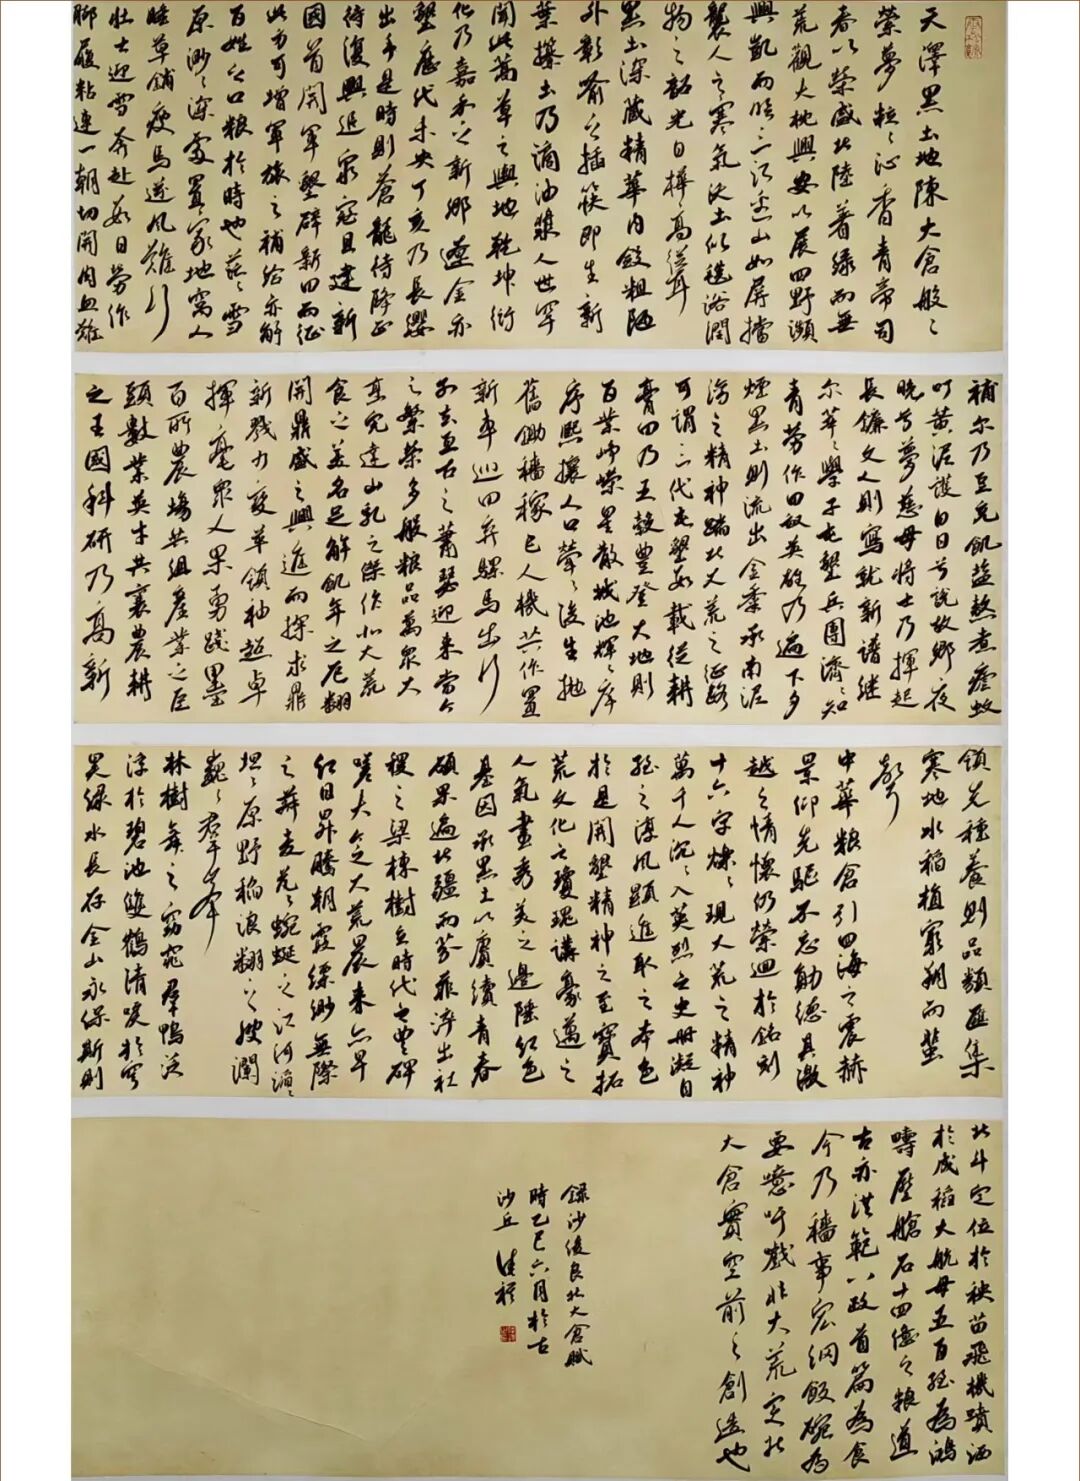 天澤黑土地陳大倉般之
榮夢粒之沁香青帝司
春以榮盛北陸著綠而無
荒觀大地興安以展四野瀕
興凱而臨三江完山如屏擋
襲人之寒氣沃土似毯浴潤
物之韶光白樺高從聳
黑土深藏精華内斂粗陋
外彰喻之插筷即生新
葉攥土乃滴油漿人世罕
聞此萬草之興地乾坤衍
化乃嘉禾之新鄉遼金亦
墾歷代未央丁亥乃長纓
出手是時則蒼龍待降正
待復興追窮寇且建新
國首開軍墾辟新田而征
此亦可增軍旅之補給亦解
百姓之口糧於時也茫之雪
原渺之深處置家地窩人
睡草鋪瘦馬逆風難行
壯士迎雪奔赴數日勞作
腳履粘連一朝切開肉血難
補尔乃豆充飢鹽熬煮瘧蚊
叮黄泥護白日兮説故鄉夜
晚兮夢慈母將士乃揮起
長鐮文人則寫就新譜繼
尔莘之學子屯墾兵團濟之知
青勞作田奴英雄乃遍下多
煙黑土則流出金黍承南泥
灣之精神踏北大荒之征路
可謂三代屯墾數載從耕
膏田乃五穀豐登大地則
百業崢嶸星散城池輝之序
序熙攘人口犖之後生拋
舊鋤穡稼已人機共作置
新車巡田弃騾馬出行
不在亘古之蕭瑟迎来當今
之繁榮多般糧品萬衆大
烹完達山乳之傑作北大荒
食之美名足解飢年之厄翻
開鼎盛之興進而探求鼎
新戮力變革領袖超卓
揮毫眾人果勇踐墨
百所農場共組產業之巨
頭數業英才共襄農耕
之王國科研乃高新
領先種養則品類匯集
寒地水稻植窮朔而蜚
聲
中華糧倉引四海之震赫
景仰先驅不忘勛德其激
越之情懷仍縈迴於銘刻
十六字爍之現大荒之精神
萬千人沉之入英烈之史册凝自
強之淳風顯進取之本色
於是開墾精神之至寶拓
荒文化之瓊瑰講豪邁之
人氣畫秀美之邊陲紅色
基因承黑土以賡續青春
碩果遍北疆而芬菲淬出社
稷之梁棟樹立時代之豐碑
嗟夫今之大荒晨来亦早
紅日昇騰朝霞縹緲無際
之莽麦茫之蜿蜒之江河滔之
坦之原野稻浪翻之腴瀾
巍之群峰
林樹舞之窈窕群鴨泛
浮於碧池雙鶴清唳於穹
昊綠水長存金山永保斯則
北斗定位於秧苗飛機噴洒
於成稻大航母五百強為鴻
疇壓艙石十四億之糧道
古亦洪範八政首篇為食
今乃穡事宏綱飯碗為
要噫吁戲壯大荒定北
大倉實空前之創造也
錄沙俊良北大倉賦
時乙巳六月於古
沙丘